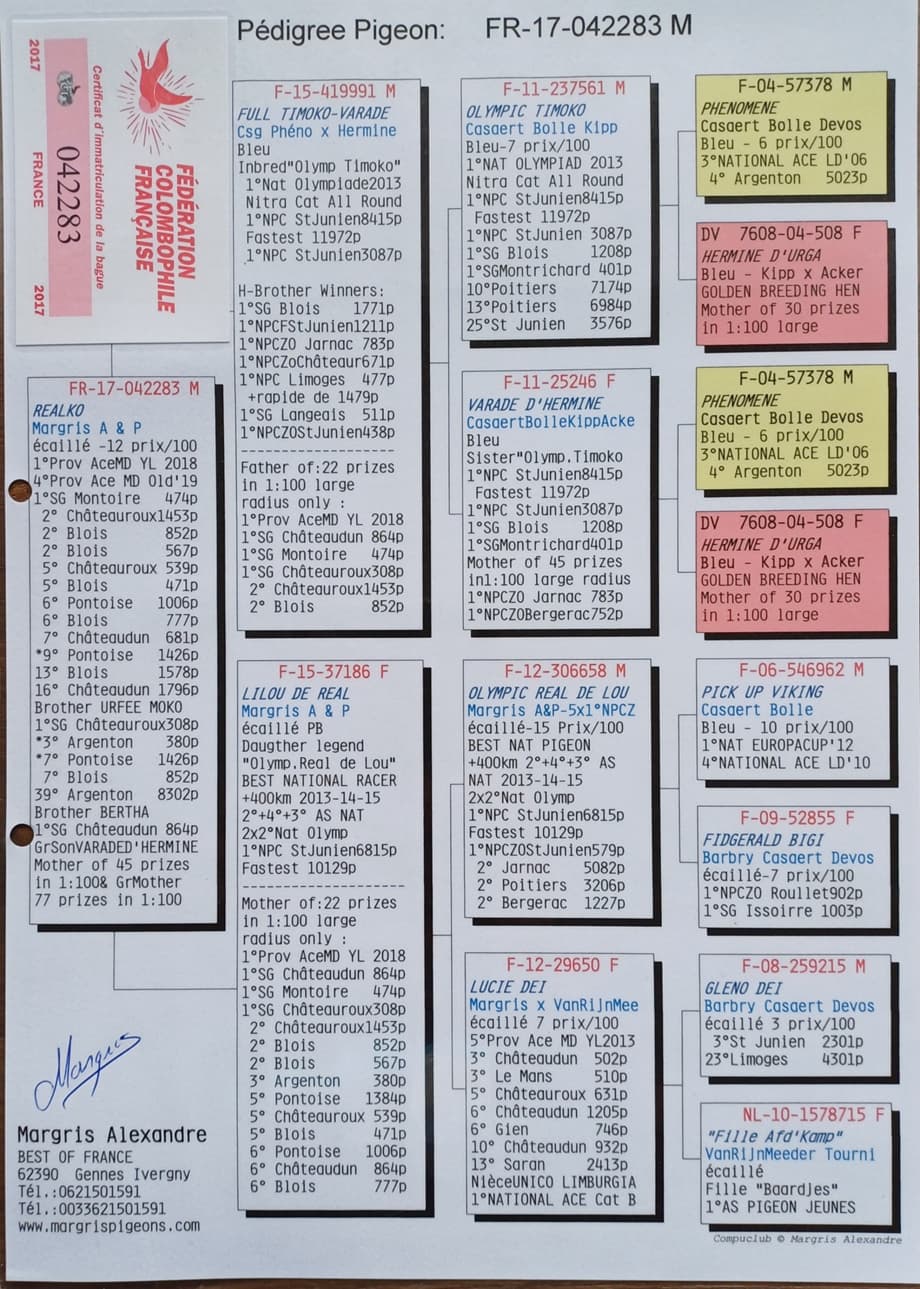 Pédigree Pigeon: FR-17-042283 M
2017 FRANCE 2017
042283
Certificat d'immatriculation de la bague
FÉDÉRATION
COLOMBOPHILE
FRANÇAISE
FR-17-042283 M
REALKO
Margris A & P
écaillé -12 prix/100
1°Prov AceMD YL 2018
4°Prov Ace MD Old'19
1°SG Montoire 474p
2° Châteauroux1453p
2° Blois 852p
2° Blois 567p
5° Châteauroux 539p
5° Blois 471p
6° Pontoise 1006p
6° Blois 777p
7° Châteaudun 681p
*9° Pontoise 1426p
13° Blois 1578p
16° Châteaudun 1796p
Brother URFEE MOKO
1°SG Châteauroux308p
*3° Argenton 380p
*7° Pontoise 1426p
7° Blois 852p
39° Argenton 8302p
Brother BERTHA
1°SG Châteaudun 864p
GrSonVARADED'HERMINE
Mother of 45 prizes
in 1:100& GrMother
77 prizes in 1:100
F-15-419991 M
FULL TIMOKO-VARADE
Csg Phéno x Hermine
Bleu
Inbred"Olymp Timoko"
1°Nat Olympiade2013
Nitra Cat All Round
1°NPC StJunien8415p
Fastest 11972p
1°NPC StJunien3087p
H-Brother Winners:
1°SG Blois 1771p
1°NPCFStJunien1211p
1°NPCZO Jarnac 783p
1°NPCZoChâteaur671p
1°NPC Limoges 477p
+rapide de 1479p
1°SG Langeais 511p
1°NPCZOStJunien438p
-------------------
Father of:22 prizes
in 1:100 large
radius only :
1°Prov AceMD YL 2018
1°SG Châteaudun 864p
1°SG Montoire 474p
1°SG Châteauroux308p
2° Châteauroux1453p
2° Blois 852p
F-15-37186 F
LILOU DE REAL
Margris A & P
écaillé PB
Daugther legend
"Olymp.Real de Lou"
BEST NATIONAL RACER
+400km 2013-14-15
2°+4°+3° AS NAT
2x2°Nat Olymp
1°NPC StJunien6815p
Fastest 10129p
--------------------
Mother of:22 prizes
in 1:100 large
radius only :
1°Prov AceMD YL 2018
1°SG Châteaudun 864p
1°SG Montoire 474p
1°SG Châteauroux308p
2° Châteauroux1453p
2° Blois 852p
2° Blois 567p
3° Argenton 380p
5° Pontoise 1384p
5° Châteauroux 539p
5° Blois 471p
6° Pontoise 1006p
6° Châteaudun 864p
6° Blois 777p
F-11-237561 M
OLYMPIC TIMOKO
Casaert Bolle Kipp
Bleu-7 prix/100
1°NAT OLYMPIAD 2013
Nitra Cat All Round
1°NPC StJunien8415p
Fastest 11972p
1°NPC StJunien 3087p
1°SG Blois 1208p
1°SGMontrichard 401p
10°Poitiers 7174p
13°Poitiers 6984p
25°St Junien 3576p
F-11-25246 F
VARADE D'HERMINE
CasaertBolleKippAcke
Bleu
Sister"Olymp.Timoko
1°NPC StJunien8415p
Fastest 11972p
1°NPC StJunien3087p
1°SG Blois 1208p
1°SGMontrichard401p
Mother of 45 prizes
in1:100 large radius
1°NPCZO Jarnac 783p
1°NPCZOBergerac752p
F-12-306658 M
OLYMPIC REAL DE LOU
Margris A&P-5x1°NPCZ
écaillé-15 Prix/100
BEST NAT PIGEON
+400km 2°+4°+3° AS
NAT 2013-14-15
2x2°Nat Olymp
1°NPC StJunien6815p
Fastest 10129p
1°NPCZOStJunien579p
2° Jarnac 5082p
2° Poitiers 3206p
2° Bergerac 1227p
F-12-29650 F
LUCIE DEI
Margris x VanRijnMee
écaillé 7 prix/100
5°Prov Ace MD YL2013
3° Châteaudun 502p
3° Le Mans 510p
5° Châteauroux 631p
6° Châteaudun 1205p
6° Gien 746p
10° Châteaudun 932p
13° Saran 2413p
NièceUNICO LIMBURGIA
1°NATIONAL ACE Cat B
F-04-57378 M
PHENOMENE
Casaert Bolle Devos
Bleu - 6 prix/100
3°NATIONAL ACE LD'06
4° Argenton 5023p
DV 7608-04-508 F
HERMINE D'URGA
Bleu - Kipp x Acker
GOLDEN BREEDING HEN
Mother of 30 prizes
in 1:100 large
F-04-57378 M
PHENOMENE
Casaert Bolle Devos
Bleu - 6 prix/100
3°NATIONAL ACE LD'06
4° Argenton 5023p
DV 7608-04-508 F
HERMINE D'URGA
Bleu - Kipp x Acker
GOLDEN BREEDING HEN
Mother of 30 prizes
in 1:100 large
F-06-546962 M
PICK UP VIKING
Casaert Bolle
Bleu - 10 prix/100
1°NAT EUROPACUP'12
4°NATIONAL ACE LD'10
F-09-52855 F
FIDGERALD BIGI
Barbry Casaert Devos
écaillé-7 prix/100
1°NPCZO Roullet902p
1°SG Issoirre 1003p
F-08-259215 M
GLENO DEI
Barbry Casaert Devos
écaillé 3 prix/100
3°St Junien 2301p
23°Limoges 4301p
NL-10-1578715 F
"Fille Afd'Kamp"
VanRijnMeeder Tourni
écaillé
Fille "Baardjes"
1°AS PIGEON JEUNES
Margris
Margris Alexandre
BEST OF FRANCE
62390 Gennes Ivergny
Tél.:0621501591
Tél.:0033621501591
www.margrispigeons.com
Compuclub © Margris Alexandre